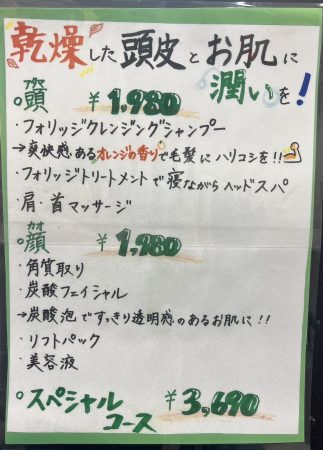 乾燥した頭皮とお肌に
潤いを!
○頭 ¥1,980
アタマ
・フォリッジクレンジングシャンプー
→爽快感あるオレンジの香りで毛髪にハリコシを!!
・フォリッジトリートメントで寝ながらヘッドスパ
・肩・首マッサージ
カオ
○顔 ¥1,980
・角質取り
・炭酸フェイシャル
→炭酸泡ですっきり透明感のあるお肌に!!
・リフトパック
・美容液
○スペシャル
コース ¥3,690